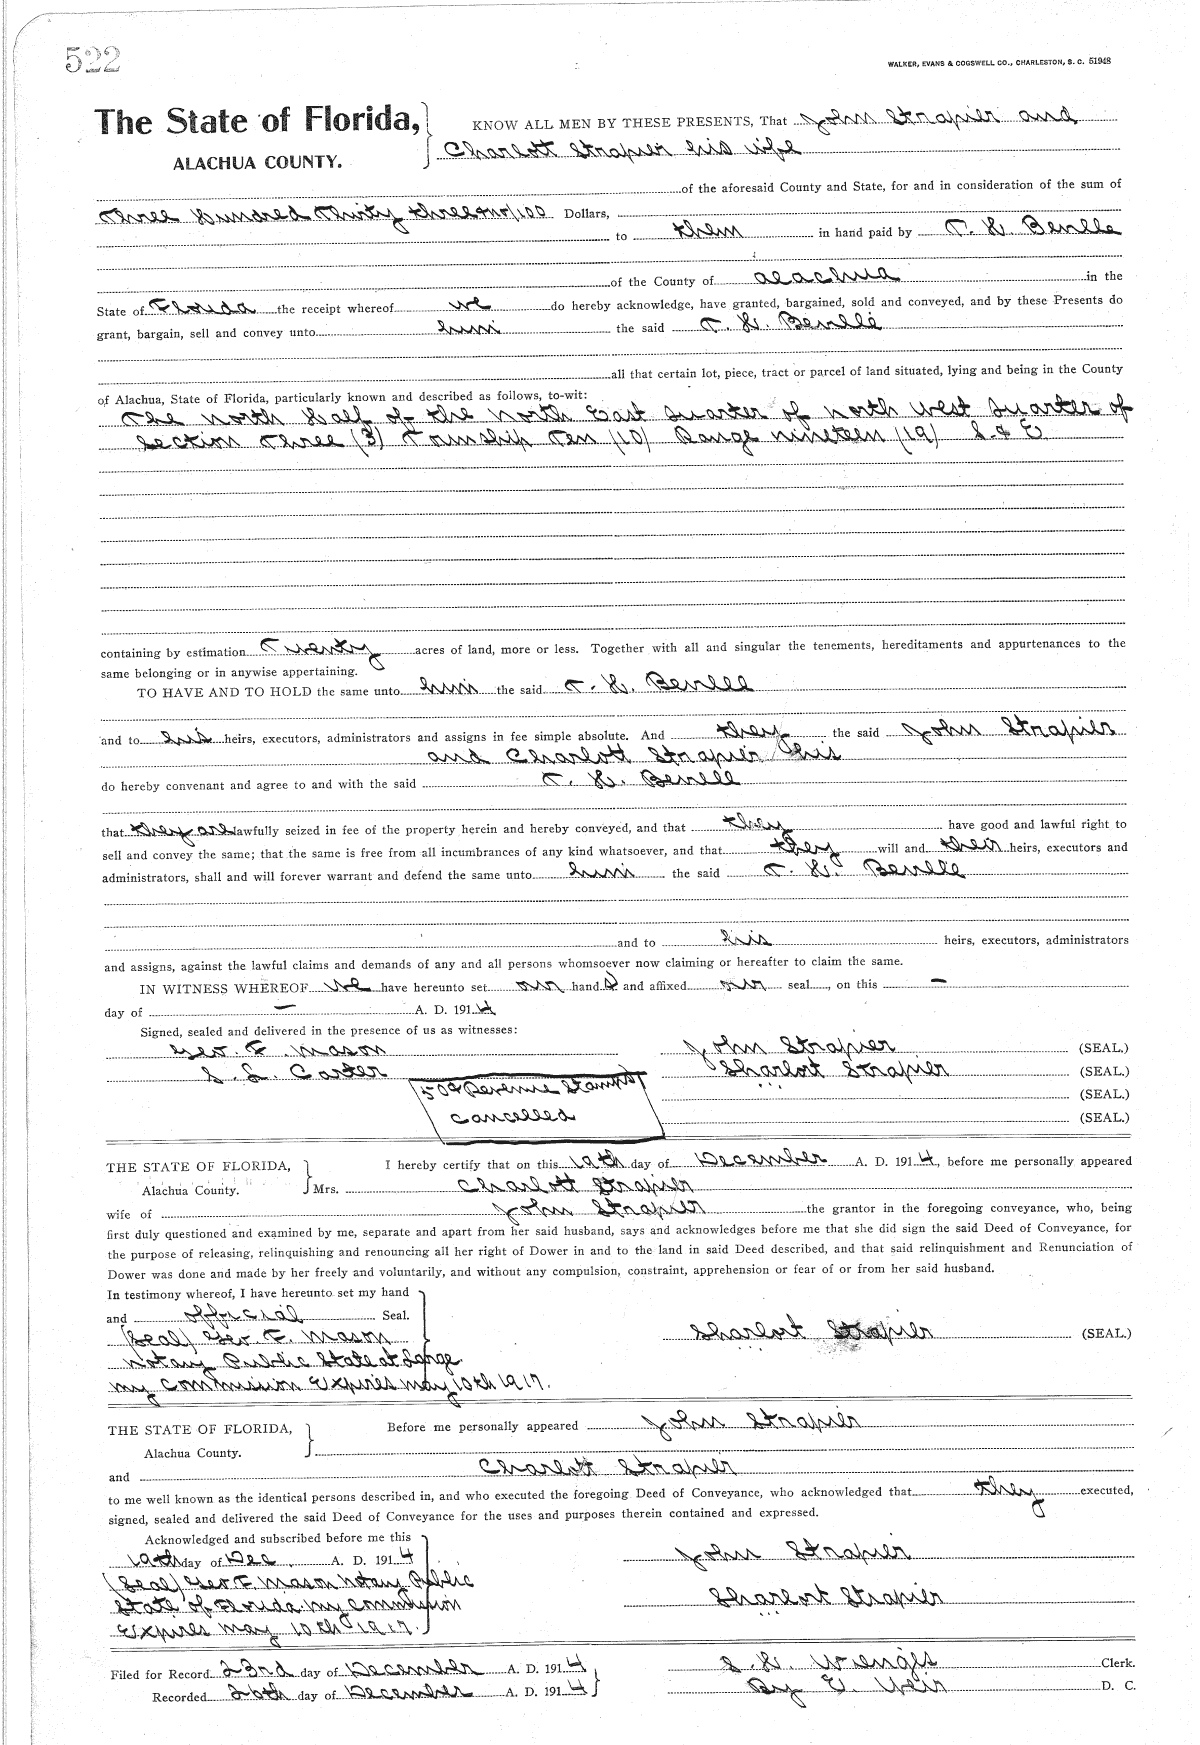 522
WALKER, EVANS & COGSWELL CO., CHARLESTON, S. C. 51948
The State of Florida,
ALACHUA COUNTY.
KNOW ALL MEN BY THESE PRESENTS, That John Strapier and
Charlott Strapier his wife
of the aforesaid County and State, for and in consideration of the sum of
Three Hundred Thirty three & no/100 Dollars,
to them in hand paid by T. H. Beville
of the County of Alachua in the
State of Florida the receipt whereof we do hereby acknowledge, have granted, bargained, sold and conveyed, and by these Presents do
grant, bargain, sell and convey unto him the said T. H. Beville
all that certain lot, piece, tract or parcel of land situated, lying and being in the County
of Alachua, State of Florida, particularly known and described as follows, to-wit:
The North Half of the North East Quarter of North West Quarter of
Section Three (3) Township Ten (10) Range nineteen (19) S. & E
containing by estimation Twenty acres of land, more or less. Together with all and singular the tenements, hereditaments and appurtenances to the
same belonging or in anywise appertaining.
TO HAVE AND TO HOLD the same unto him the said T. H. Beville
and to his heirs, executors, administrators and assigns in fee simple absolute. And they the said John Strapier
and Charlott Strapier his
do hereby convenant and agree to and with the said T. H. Beville
that they are lawfully seized in fee of the property herein and hereby conveyed, and that they have good and lawful right to
sell and convey the same; that the same is free from all incumbrances of any kind whatsoever, and that they will and their heirs, executors and
administrators, shall and will forever warrant and defend the same unto him the said T. H. Beville
and to his heirs, executors, administrators
and assigns, against the lawful claims and demands of any and all persons whomsoever now claiming or hereafter to claim the same.
IN WITNESS WHEREOF we have hereunto set our hand s and affixed our seal , on this –
day of – A. D. 1914
Signed, sealed and delivered in the presence of us as witnesses:
Geo. F. Mason John Strapier (SEAL.)
S. L. Carter Sharlort Strapier (SEAL.)
50¢ Revenue Stamps (SEAL.)
Cancelled (SEAL.)
THE STATE OF FLORIDA, I hereby certify that on this 19th day of December A. D. 1914, before me personally appeared
Alachua County. Mrs. Charlott Strapier
wife of John Strapier the grantor in the foregoing conveyance, who, being
first duly questioned and examined by me, separate and apart from her said husband, says and acknowledges before me that she did sign the said Deed of Conveyance, for
the purpose of releasing, relinquishing and renouncing all her right of Dower in and to the land in said Deed described, and that said relinquishment and Renunciation of
Dower was done and made by her freely and voluntarily, and without any compulsion, constraint, apprehension or fear of or from her said husband.
In testimony whereof, I have hereunto set my hand
and official Seal.
(Seal) Geo. F. Mason Sharlort Strapier (SEAL.)
Notary Public State at Large
my Commission Expires May 10th 1917.
THE STATE OF FLORIDA, Before me personally appeared John Strapier
Alachua County.
and Charlott Strapier
to me well known as the identical persons described in, and who executed the foregoing Deed of Conveyance, who acknowledged that they executed,
signed, sealed and delivered the said Deed of Conveyance for the uses and purposes therein contained and expressed.
Acknowledged and subscribed before me this
19th day of Dec. A. D. 1914 John Strapier
(Seal) Geo F. Mason Notary Public
State of Florida My Commission Sharlort Strapier
Expires May 10th 1917.
Filed for Record 23rd day of December A. D. 1914 S. H. Wienges Clerk.
Recorded 26th day of December A. D. 1914 By E. Weir D. C.